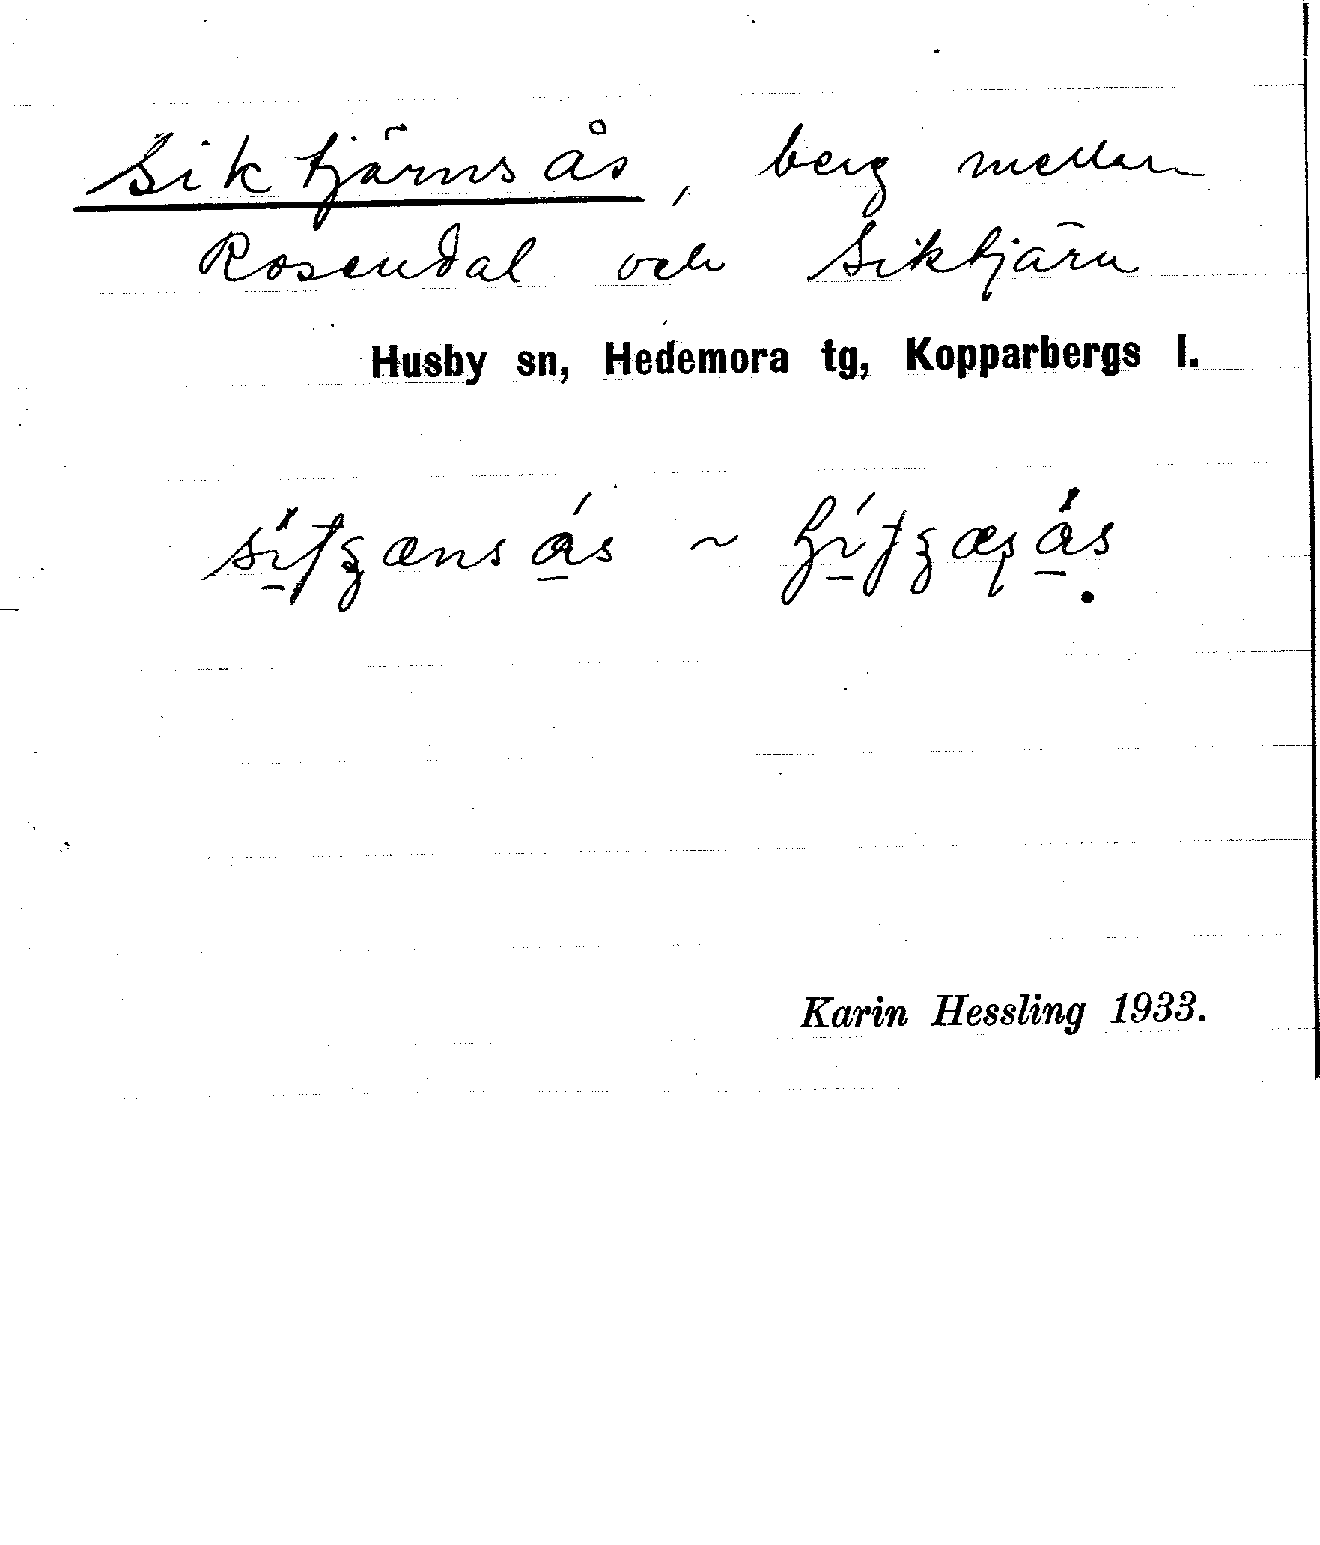 Siktjärnsås, berg mellan
Rosendal och Siktjärn
Husby sn, Hedemora tg, Kopparbergs l.
Karin Hessling 1933.